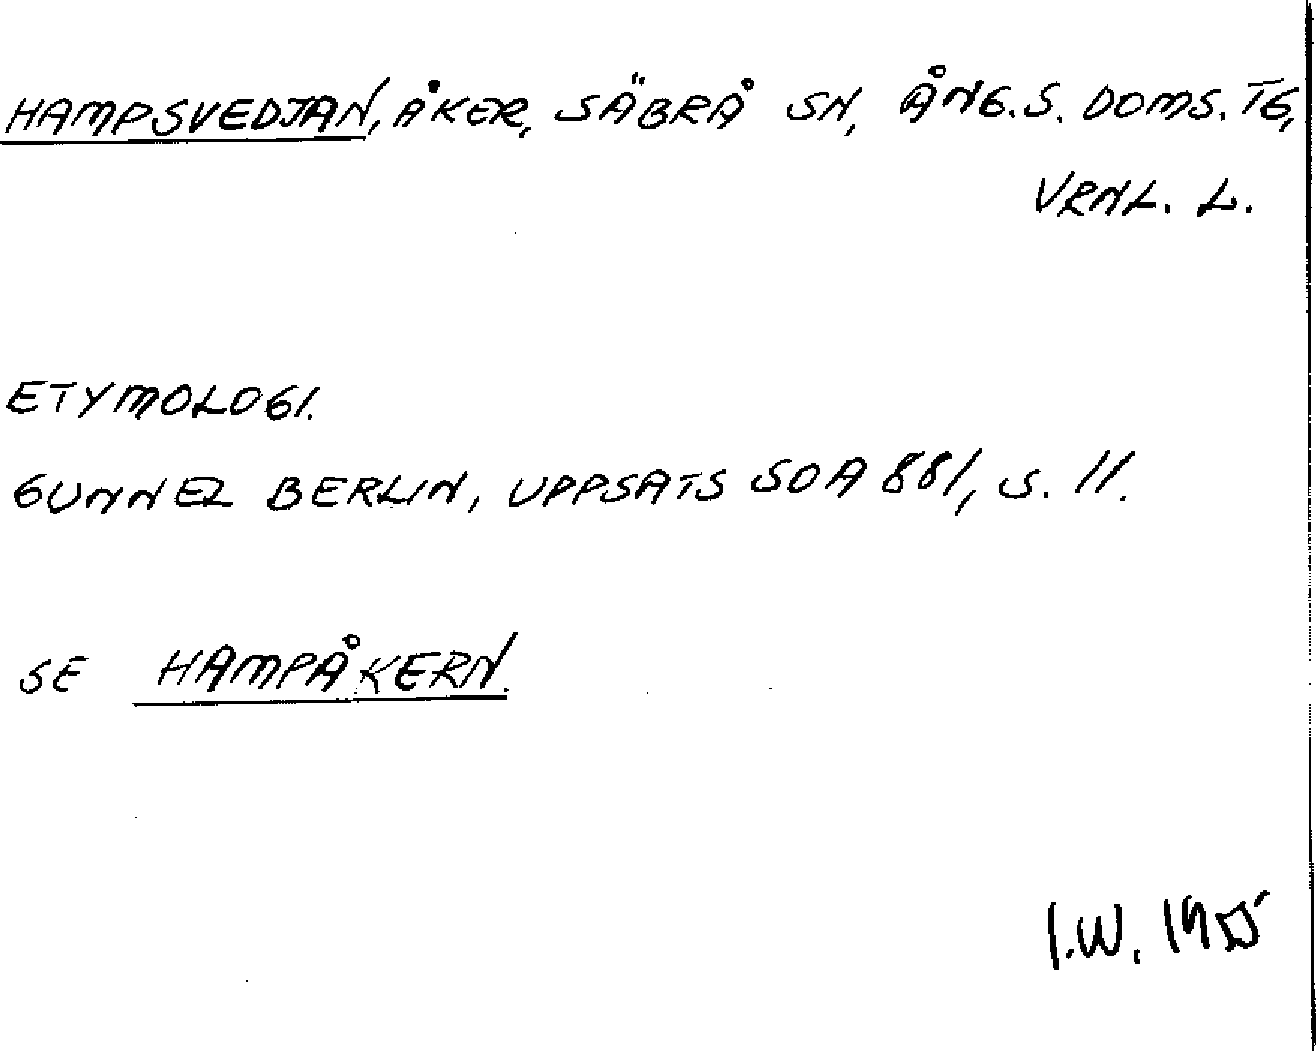 HAMPSVEDJAN, ÅKER, SÄBRÅ SN, ÅNG.S. DOMS. TG,
VRNL. L.
ETYMOLOGI.
GUNNEL BERLIN, UPPSATS SOA 881, S. 11.
SE HAMPÅKERN.
I.W. 1955